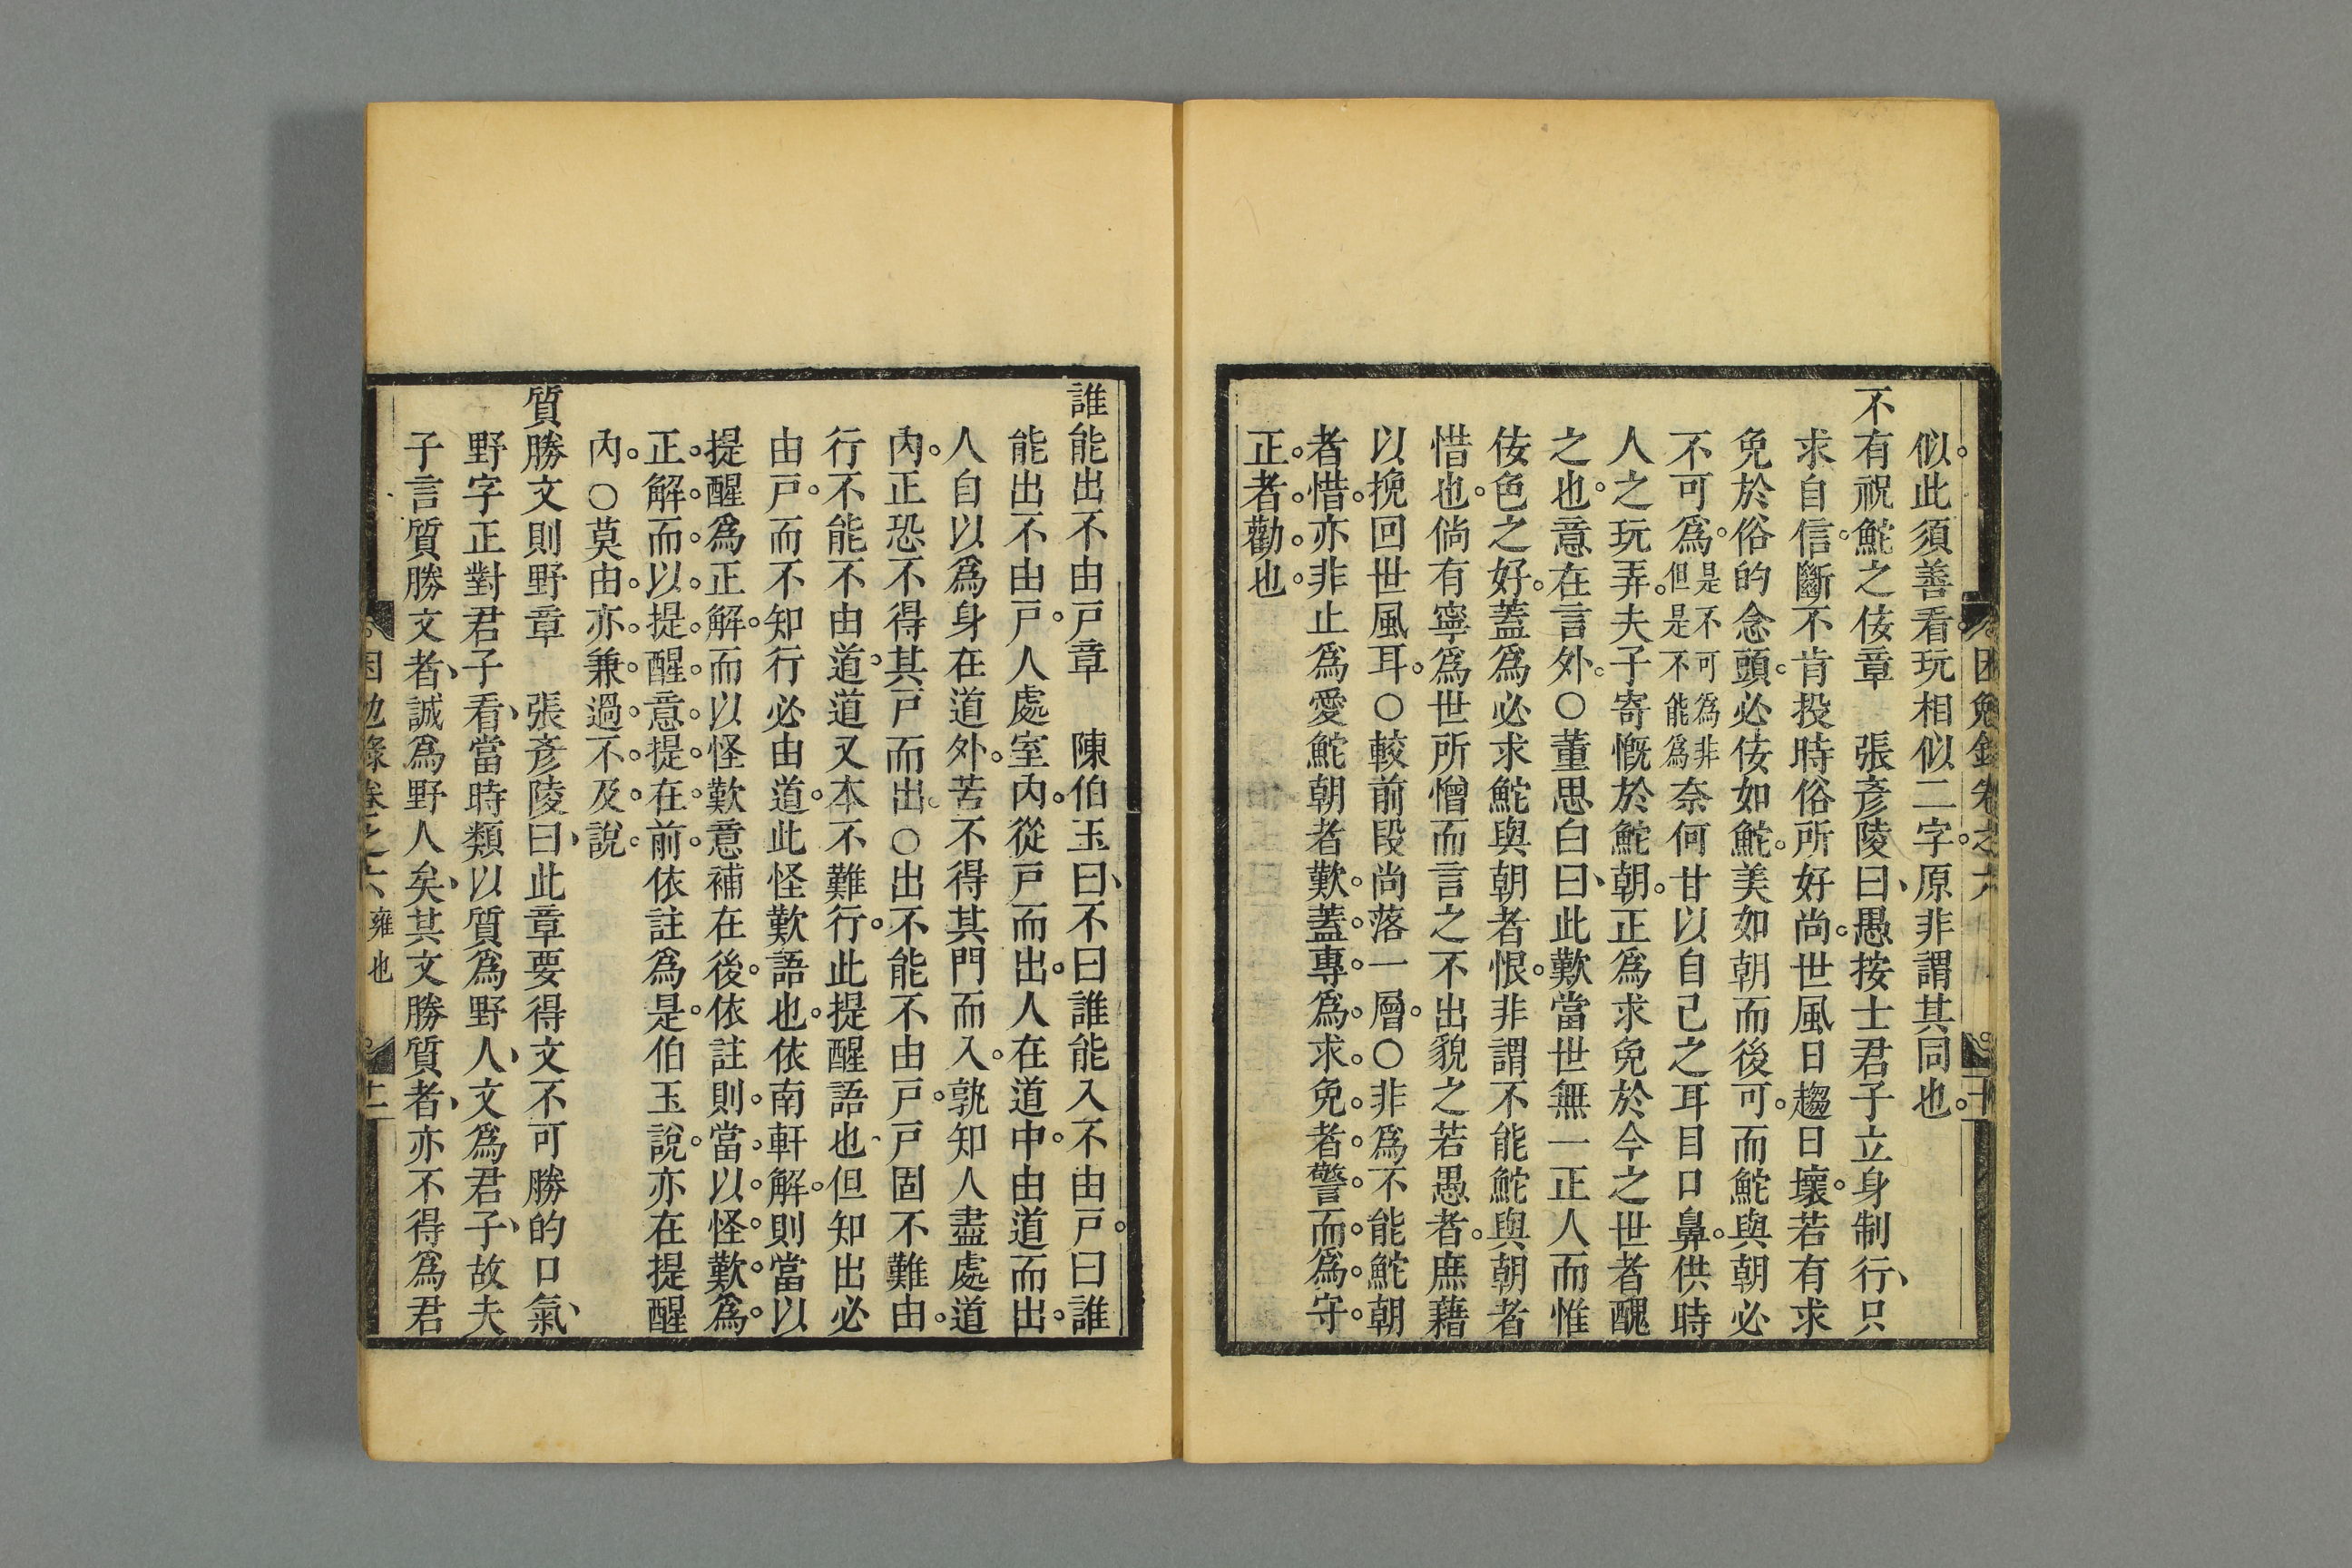 似。此須善看。玩相似二字。原非謂其同也。
不有祝鮀之佞章　張彥陵曰、愚按士君子立身制行、只
求自信。斷不肯投時俗所好尚。世風日趨日壞。若有求
免於俗的念頭。必佞如鮀。美如朝而後可。而鮀與朝必
不可爲。是不可爲非但是不能爲奈何甘以自己之耳目口鼻。供時
人之玩弄。夫子寄慨於鮀朝。正爲求免於今之世者醜
之也。意在言外。○董思白曰、此歎當世無一正人而惟
佞色之好。蓋爲必求鮀與朝者恨。非謂不能鮀與朝者
惜也。倘有寧爲世所憎而言之不出貌之若愚者。庶藉
以挽回世風耳。○較前段尚落一層。○非爲不能鮀朝
者惜。亦非止爲愛鮀朝者歎。蓋。專。爲。求。免。者。警。而。爲。守。
正。者。勸。也。
困勉錄卷之六
十一
誰能出不由戸章　陳伯玉曰、不曰誰能入不由戸。曰誰
能出不由戸。人處室內。從戸而出。人在道中。由道而出。
人自以爲身在道外。苦不得其門而入。孰知人盡處道
內。正恐不得其戸而出。○出不能不由戸。戸固不難由。
行不能不由道。道又本不難行。此提醒語也、但知出必
由戸。而不知行必由道。此怪歎語也。依南軒解。則當以
提醒爲正解。而以怪歎意補在後。依註則。當。以。怪。歎。爲。
正。解。而。以。提。醒。意。提。在。前。依註爲是。伯玉說。亦在提醒
內。○莫由。亦。兼。過。不。及。說。
質勝文則野章　張彥陵曰、此章要得文不可勝的口氣、
野字正對君子看、當時類以質爲野人、文爲君子、故夫
子言質勝文者、誠爲野人矣、其文勝質者、亦不得爲君
困勉錄卷之六　雍也
十二